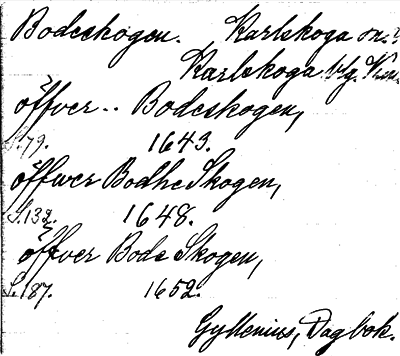 Bodeskogen. Karlskoga sn.?
Karlskoga blg.
öffver.. Bodeskogen,
S.79. 1643.
öffwer Bodhe Skogen,
S.132. 1648.
öffver Bode Skogen,
S.187. 1652.
Gyllenius, Dagbok.